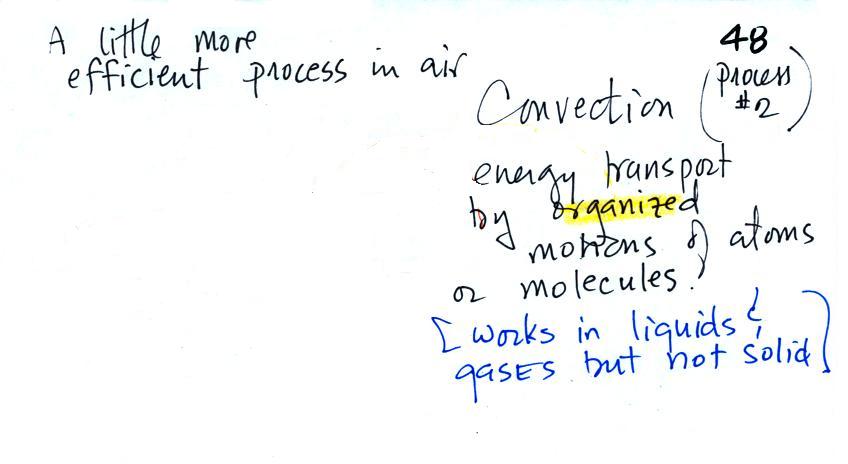 A little more
efficient process in air
48
Convection (process
#2)
energy transport
by organized
motions of atoms
or molecules.
[works in liquids &
gases but not solid]